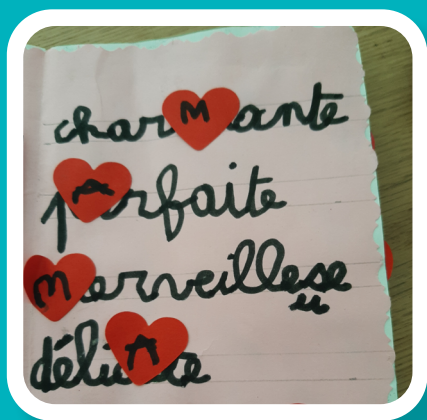 charMante
pArfaite
merveillese
u
délicAte